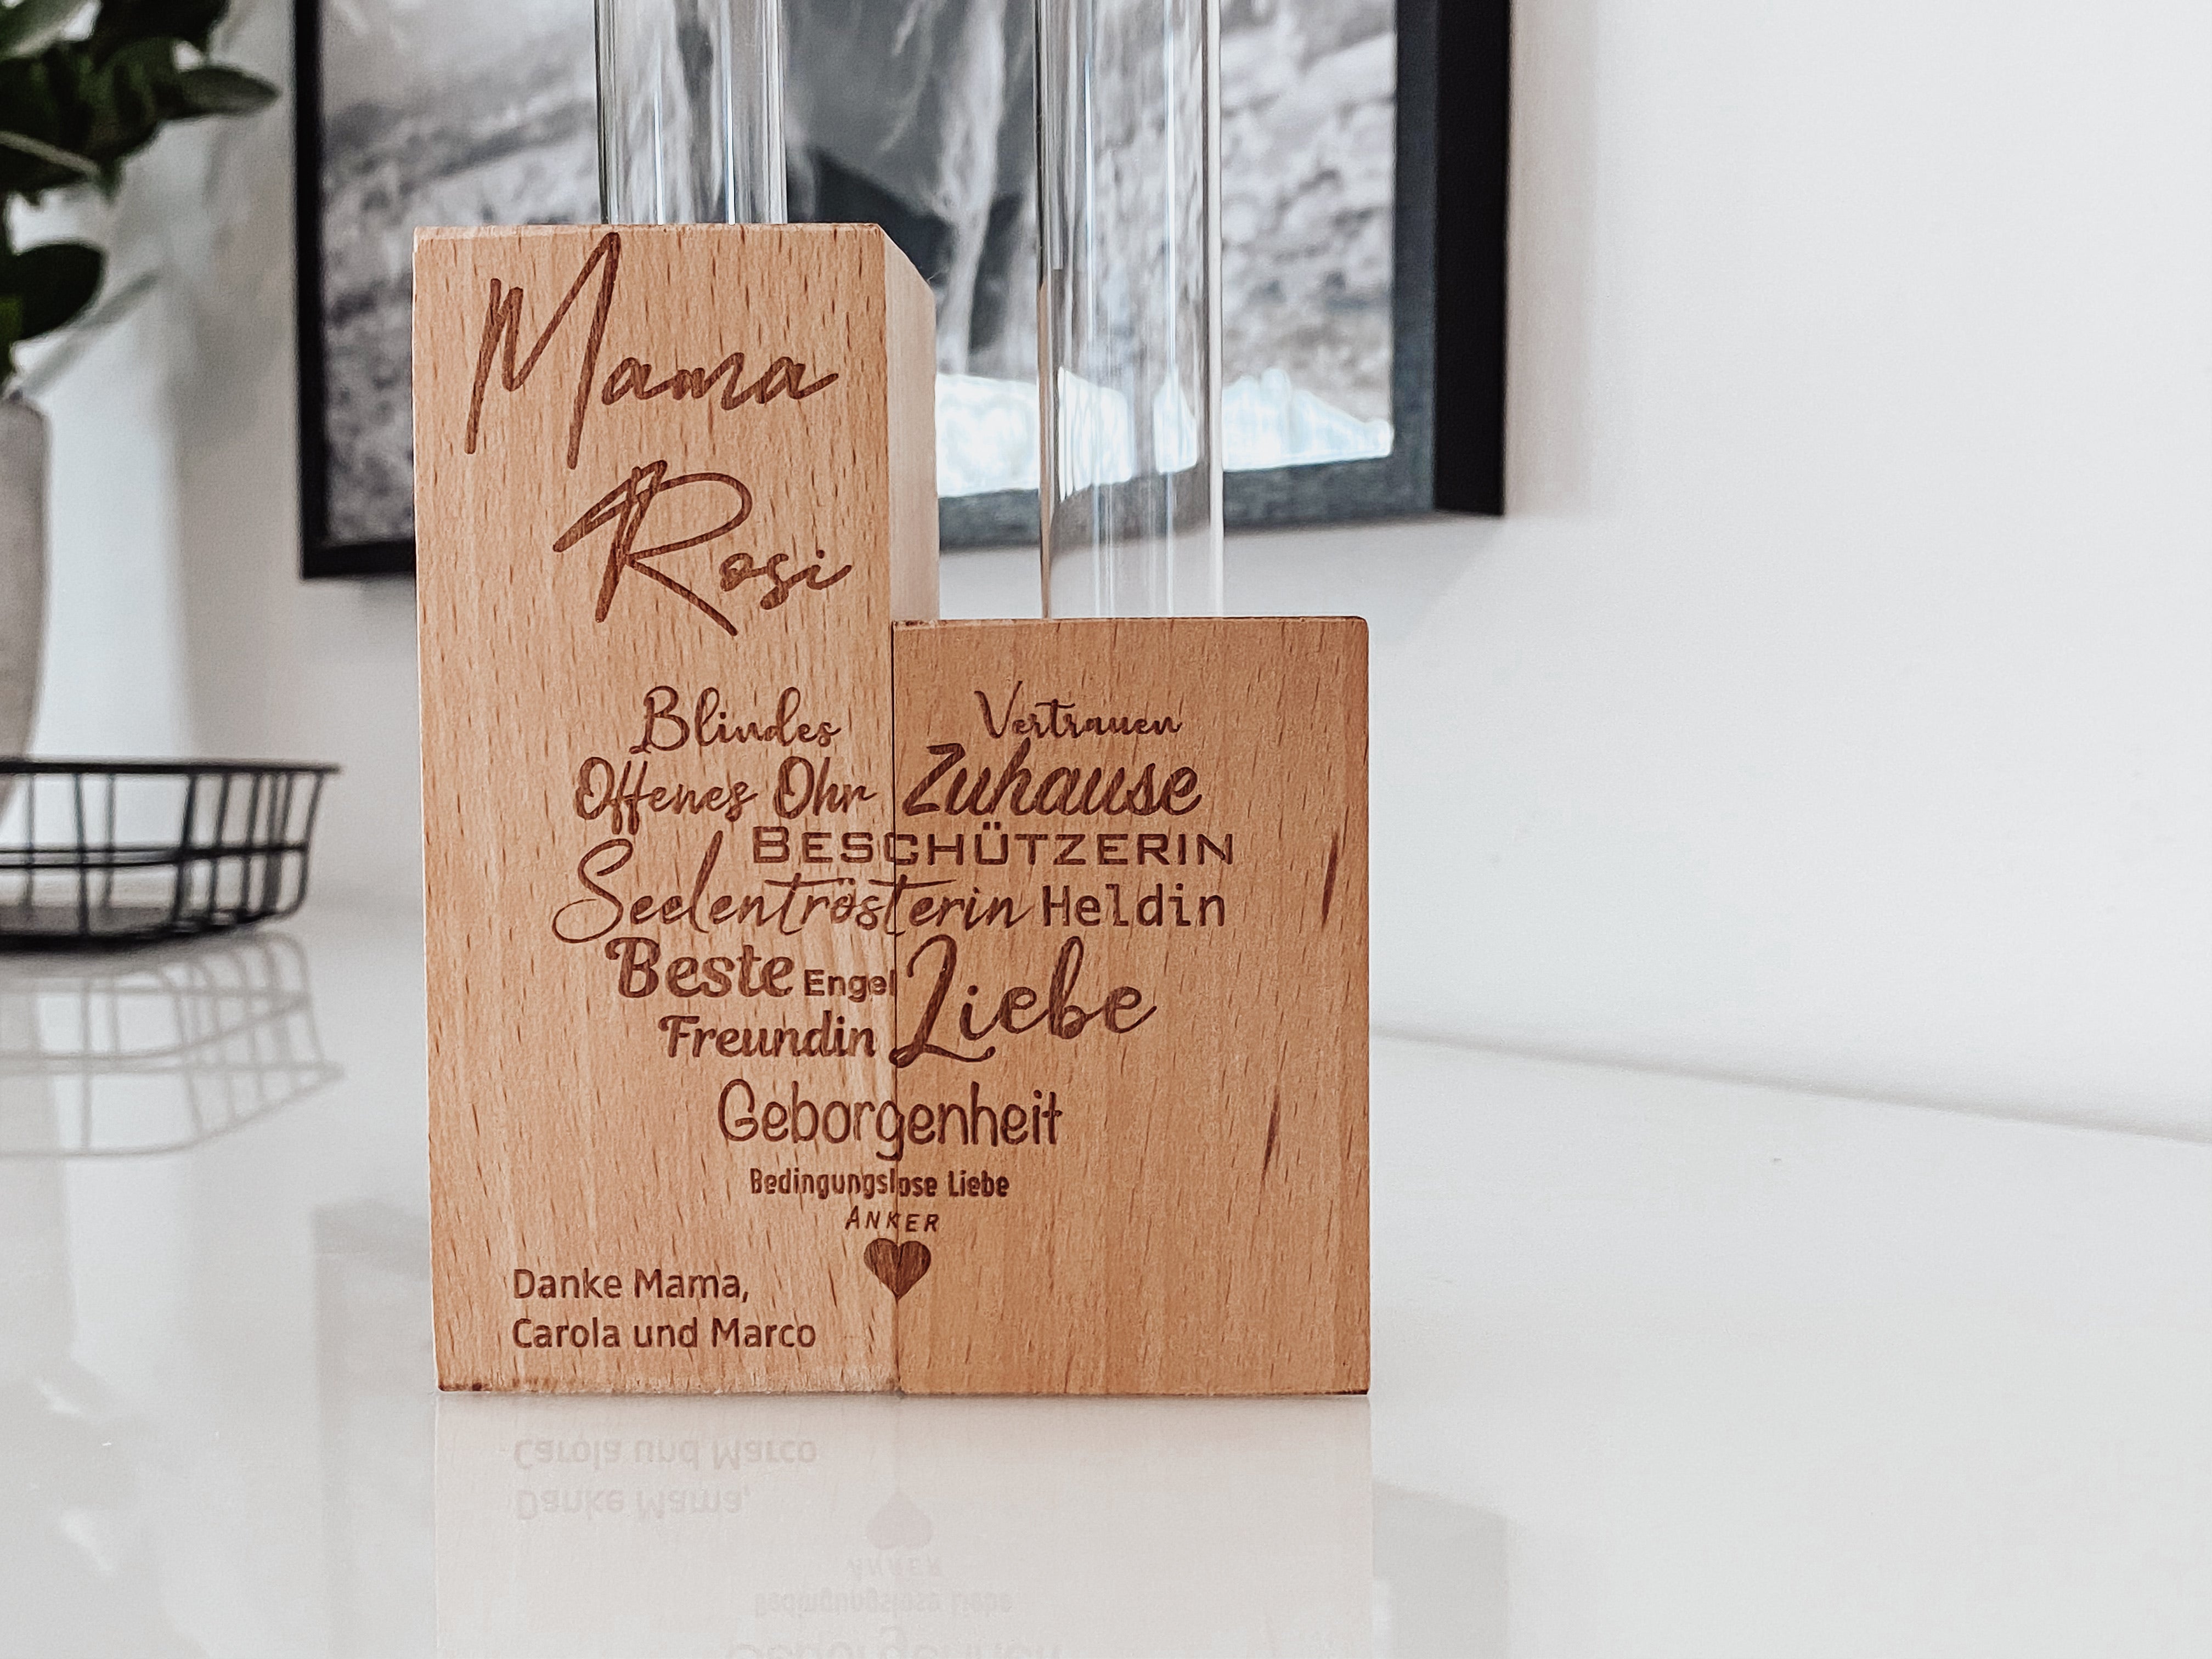 Mama
Rosi
Blindes Vertrauen
Offenes Ohr Zuhause
BESCHÜTZERIN
Seelentrösterin Heldin
Beste Engel Liebe
Freundin
Geborgenheit
Bedingungslose Liebe
ANKER
Danke Mama,
Carola und Marco